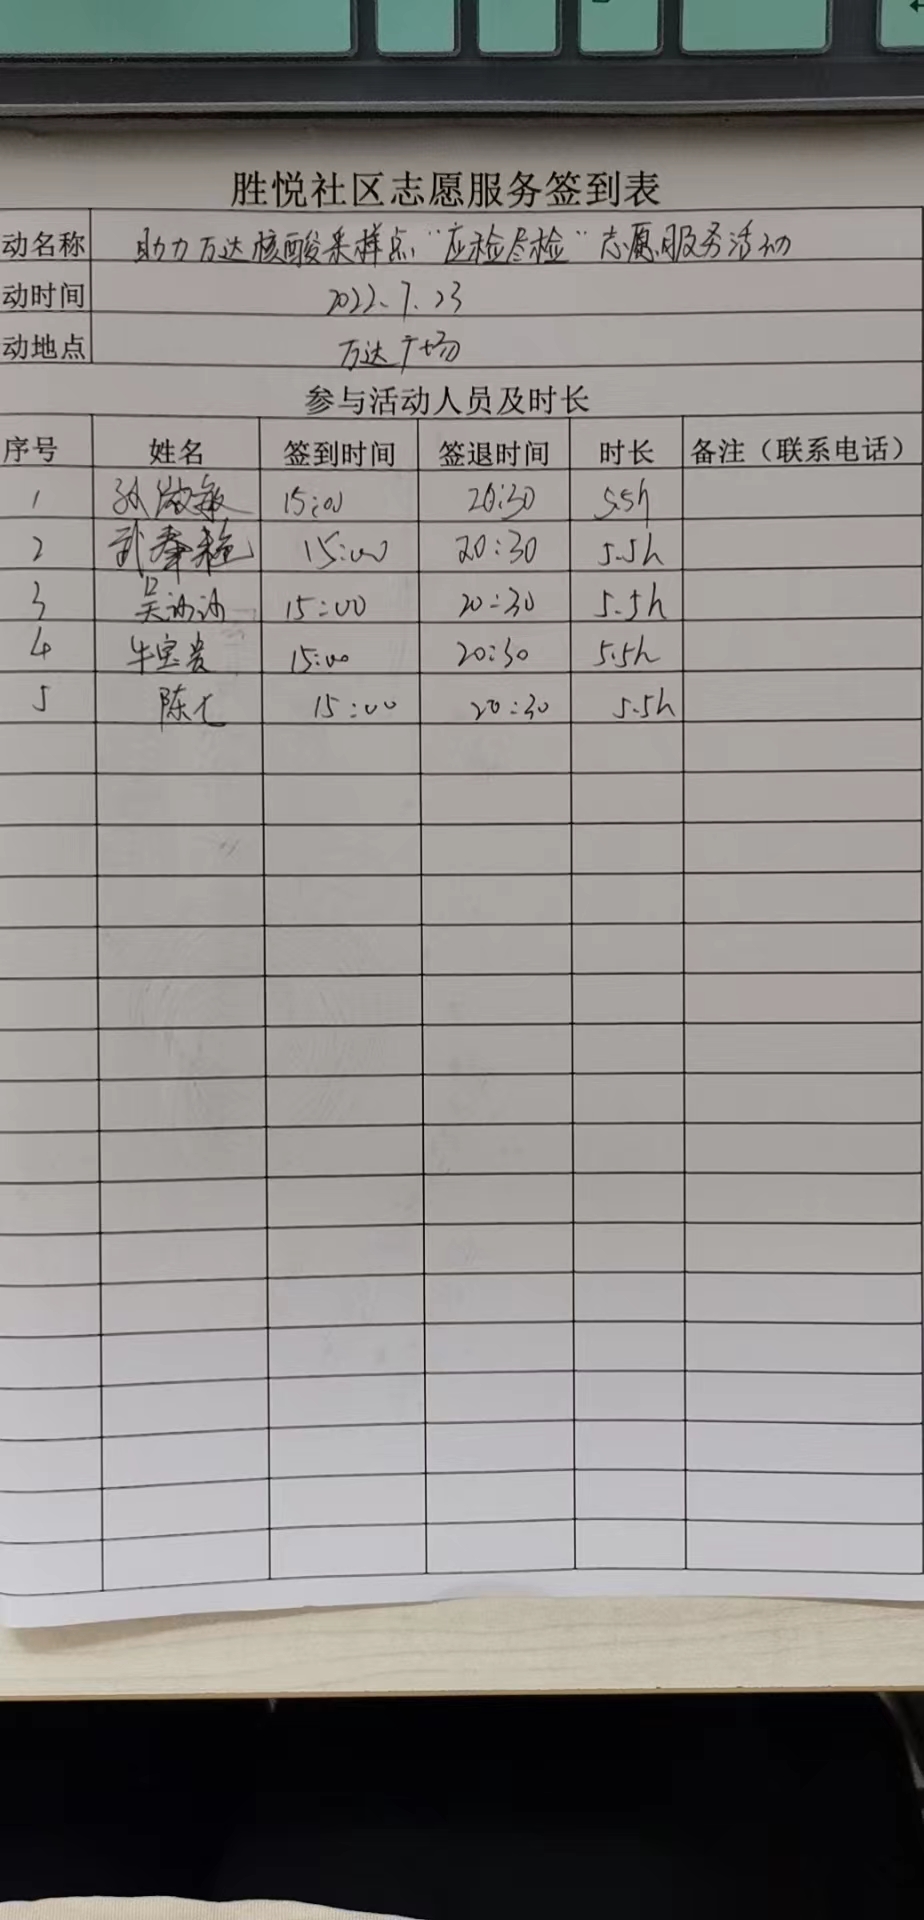 胜悦社区志愿服务签到表
动名称 助力万达核酸采样点“应检尽检”志愿服务活动
动时间 2022.7.23
动地点 万达广场
参与活动人员及时长
序号 姓名 签到时间 签退时间 时长 备注（联系电话）
1 孙敏 15:00 20:30 5.5h
2 武 15:00 20:30 5.5h
3 吴 15:00 20:30 5.5h
4 牛宝贵 15:00 20:30 5.5h
5 陈 15:00 20:30 5.5h